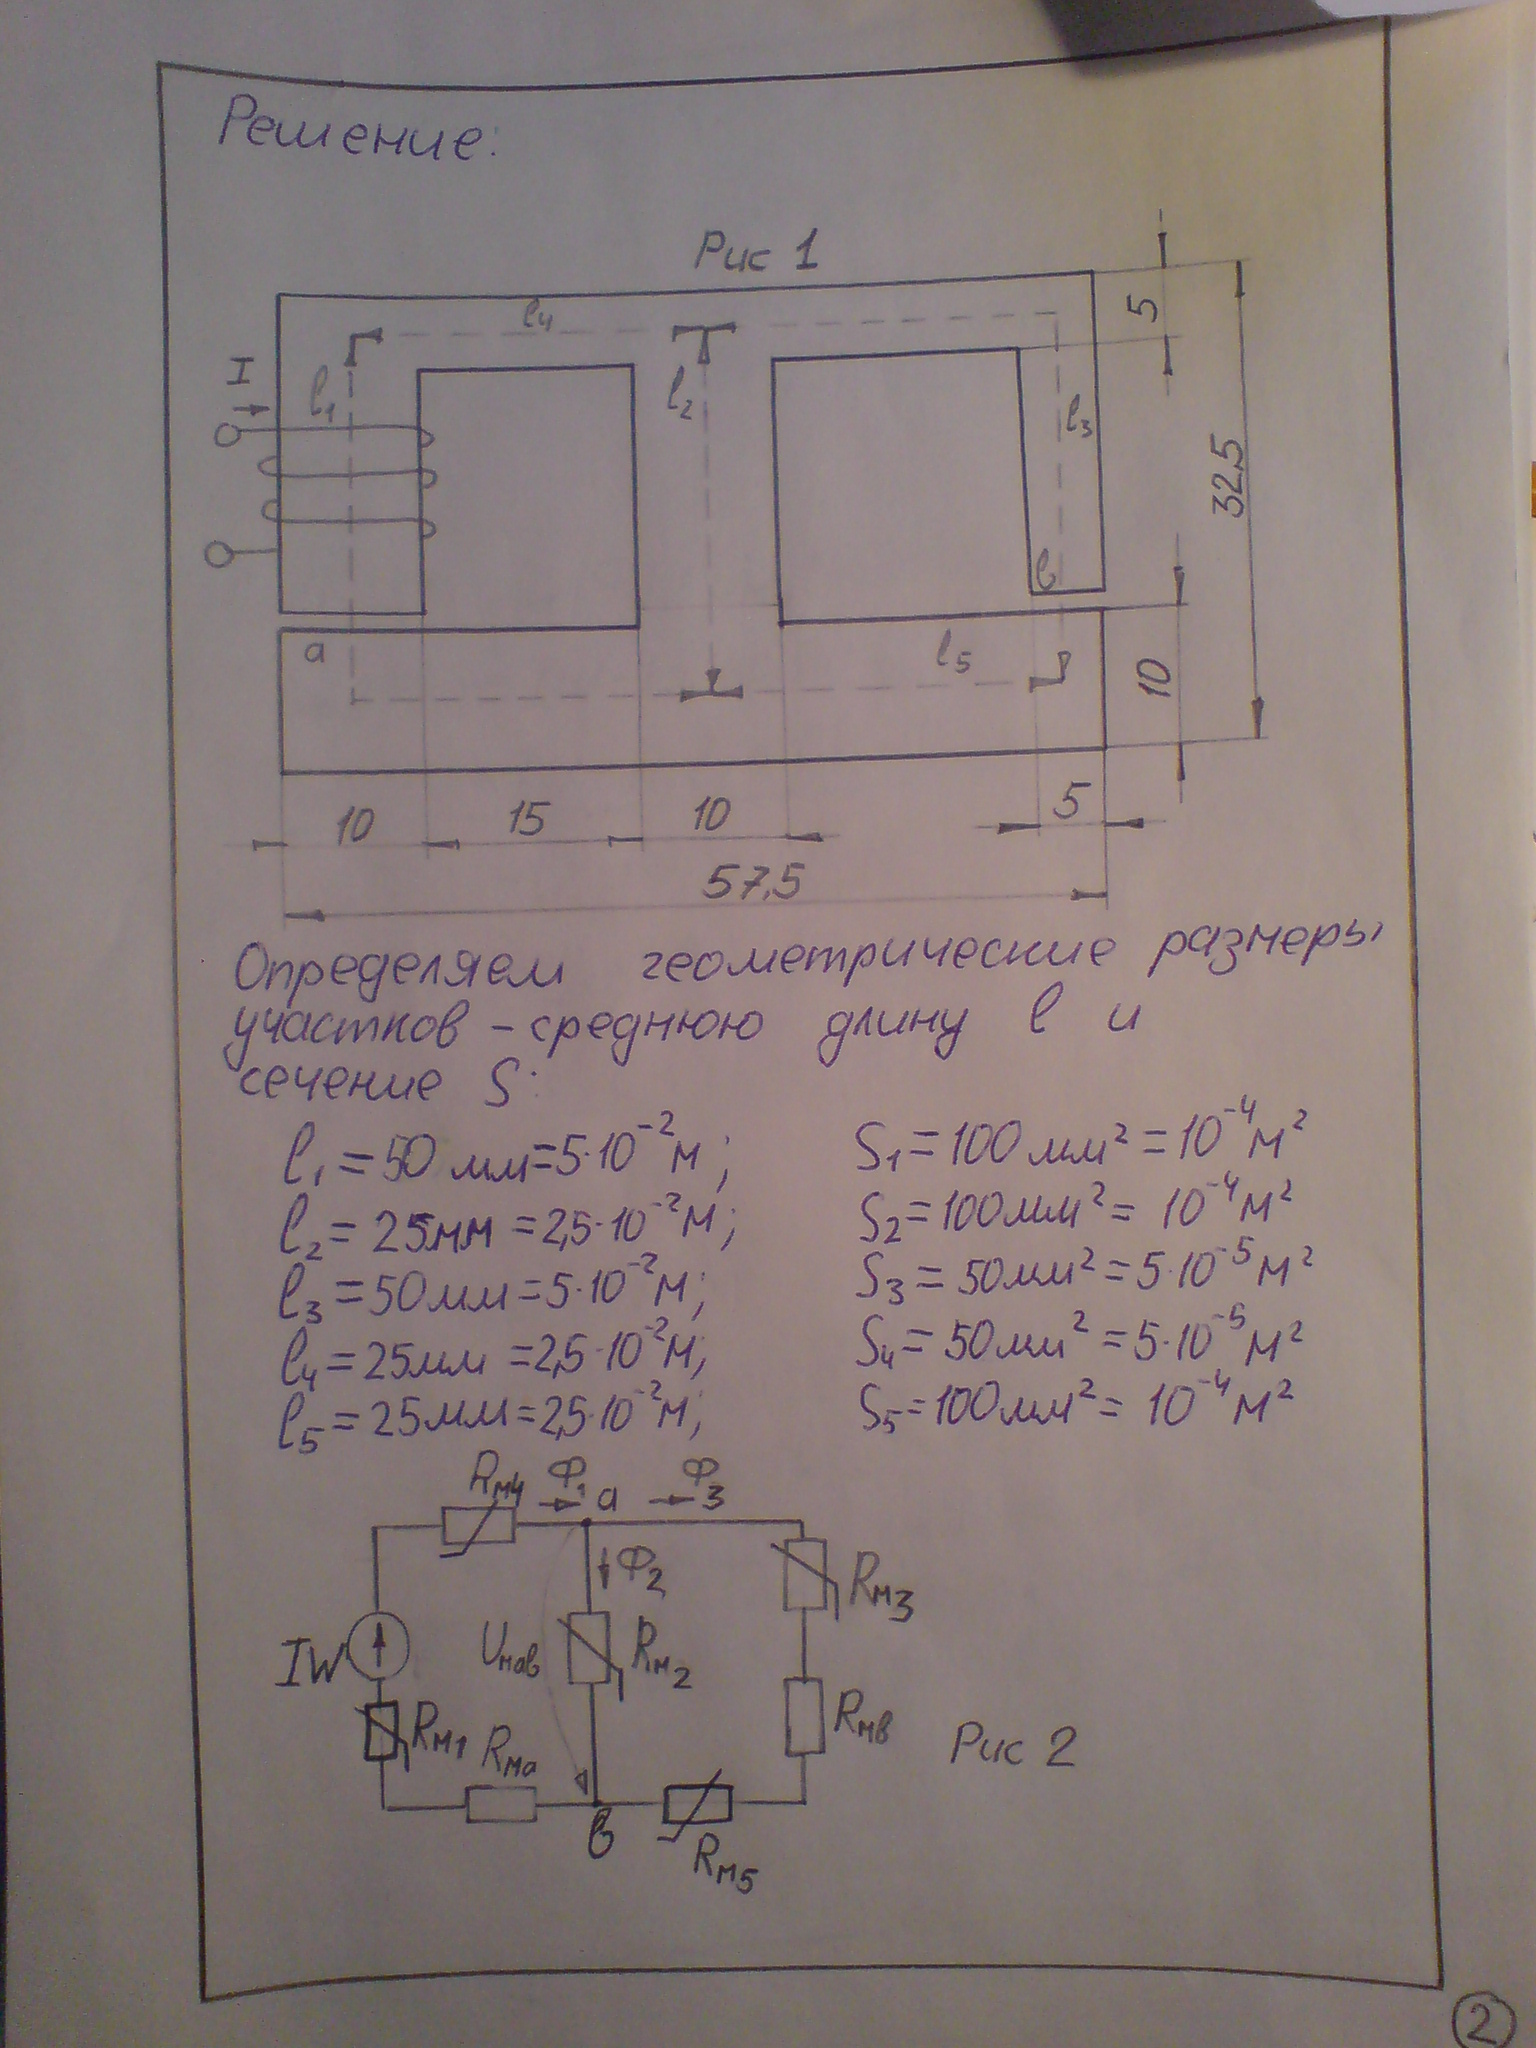 Решение:
Рис 1
l₄
5
I
l₁
l₂
l₃
32,5
в
а
l₅
10
10
15
10
5
57,5
Определяем геометрические размеры
участков – среднюю длину l и
сечение S:
l₁ = 50 мм = 5·10⁻² м; S₁ = 100 мм² = 10⁻⁴ м²
l₂ = 25 мм = 2,5·10⁻² м; S₂ = 100 мм² = 10⁻⁴ м²
l₃ = 50 мм = 5·10⁻² м; S₃ = 50 мм² = 5·10⁻⁵ м²
l₄ = 25 мм = 2,5·10⁻² м; S₄ = 50 мм² = 5·10⁻⁵ м²
l₅ = 25 мм = 2,5·10⁻² м; S₅ = 100 мм² = 10⁻⁴ м²
Rм4 Ф₁ а Ф₃
Ф₂
Rм3
IW
Uмав
Rм2
Rм1
Rма
Rмв
Рис 2
в
Rм5
2